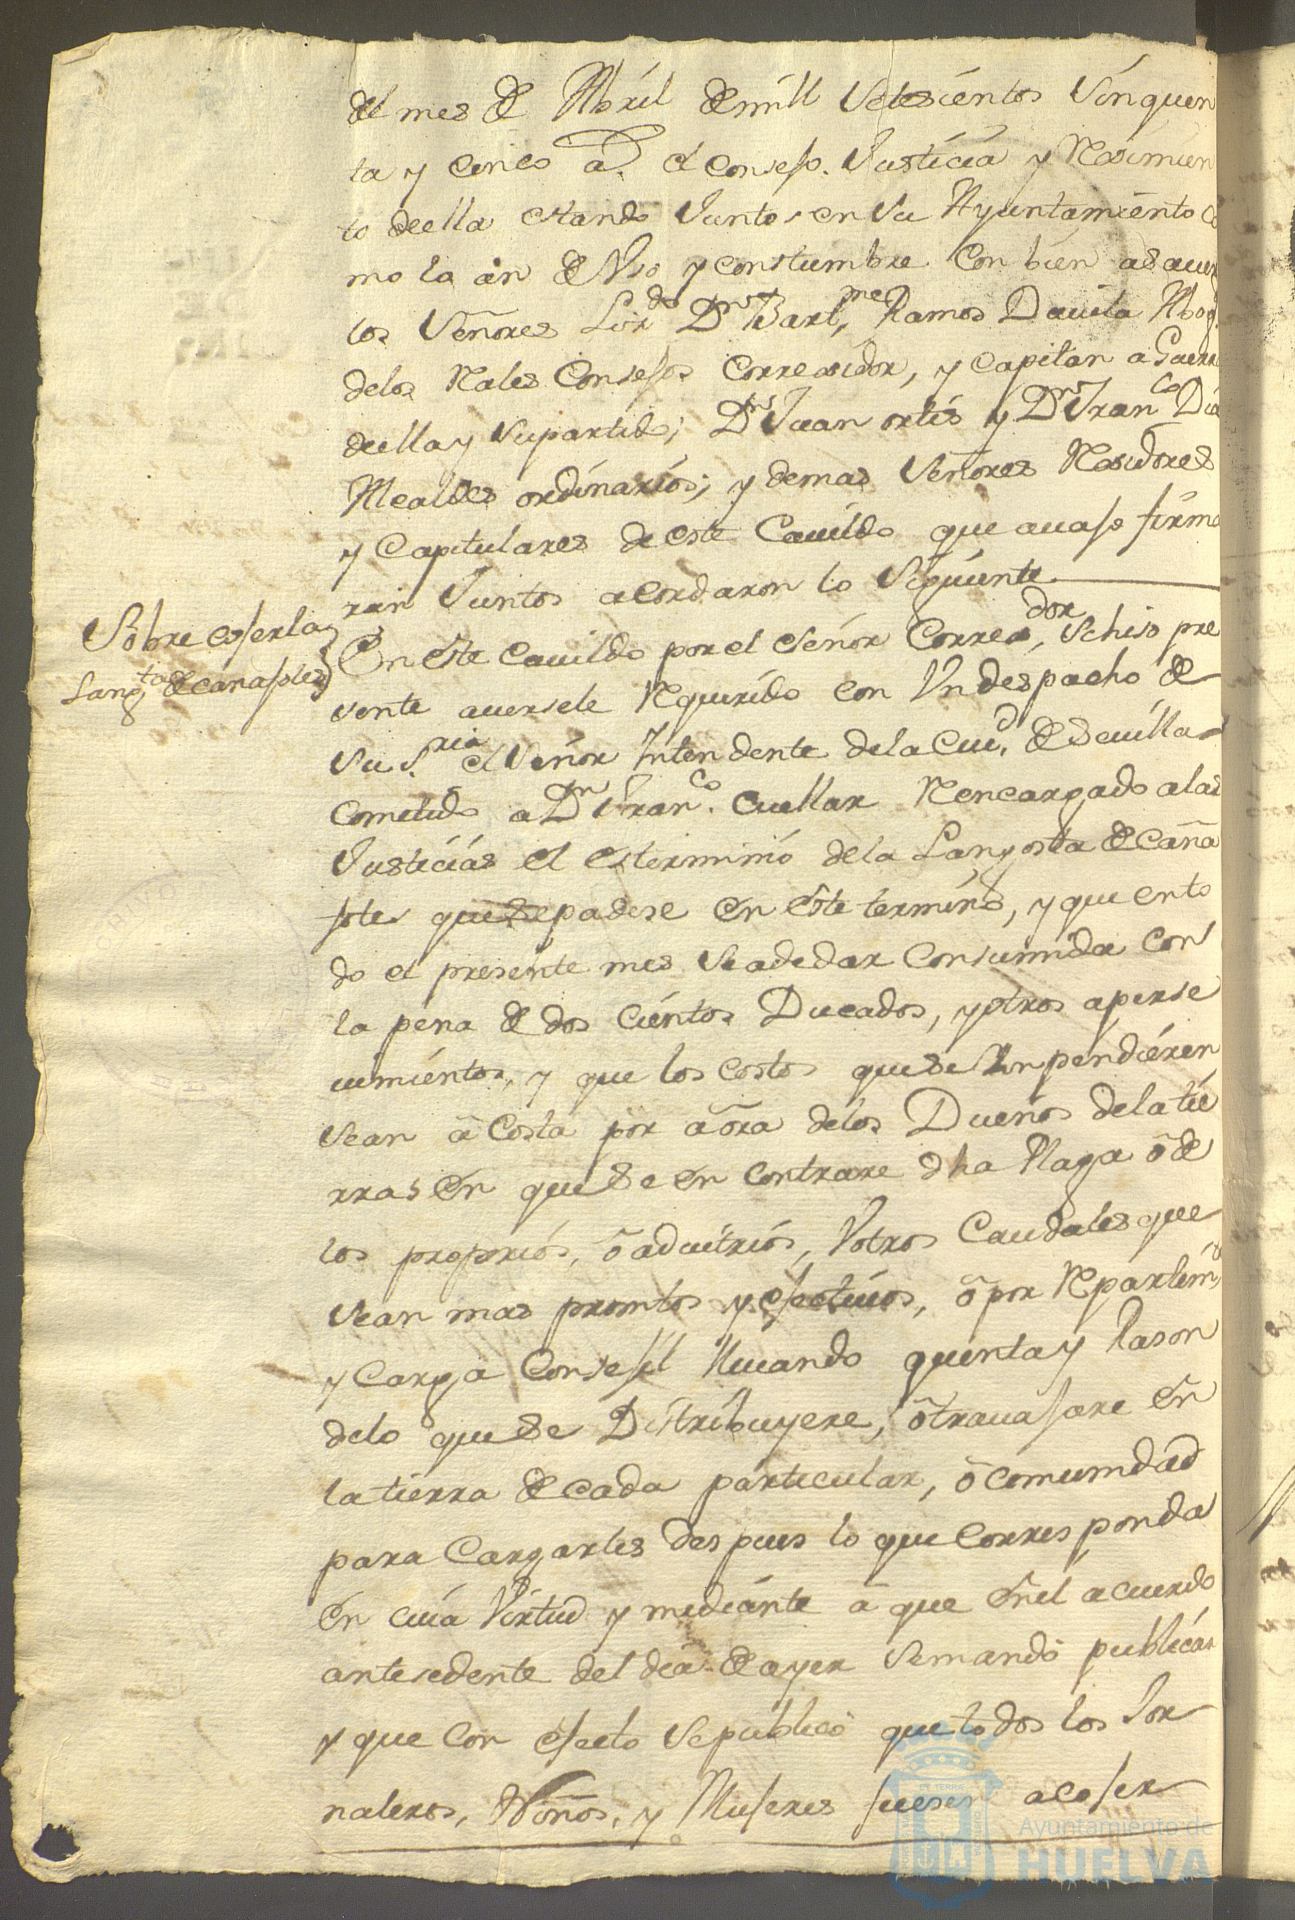 del mes de Abril de mill Setesientos Sinquen
ta y Cinco a.s el Consejo. Justicia y Rexsimien
to de ella estando Juntos en Su Ayuntamiento Co
mo la an de Uso y constumbre Con bien asaver
los Señores Lizdo Dn Barlme Ramos Davila Abog.
delos Rales Consejos Correxidor, y Capitan a Guerra
de ella y Supartido; Dn Juan ortis y Dn Franco Dia
Alcaldes ordinarios; y demas Señores Rexidores
y Capitulares de este Cavildo que avajo firma
ran Juntos acordaron lo Siguiente
Sobre cojer la
Langta de cañajotes
En este Cavildo por el Señor Corredor, Sehiso pre
sente aversele Requerido con Un despacho de
Su S.ria el Señor Intendente dela Ciud. de Sevilla
Cometido a Dn Franco. Cuellar Rencargado alas
Justicias el esterminio dela Langosta de Caña
jote que se padese en este termino, y que ento
do el presente mes Seadedar Consumida con
la pena de dos Cientos Ducados, y otros aperse
vimientos, y que los costos que se Ynpendieren
Sean a Costa por aora delos Dueños dela tie
rras En que Se en contrare dha Plaga o de
los proprios, o advitrios, Y otros Caudales que
Sean mas promtos y efectivos, o por Repartimto
y Carga Consejil llevando quenta y Rason
delo que Se Distribuyere, o travajare En
la tierra de cada particular, o comunidad
para Cargarles des pues lo que Corresponda
En cuia Virtud y mediante a que Enel acuerdo
antesedente del dia de ayer Semando publicar
y que Con efecto Sepublico que todos los Jor
naleros, Niños, y Mujeres fuesen acojer
Ayuntamiento de
HUELVA